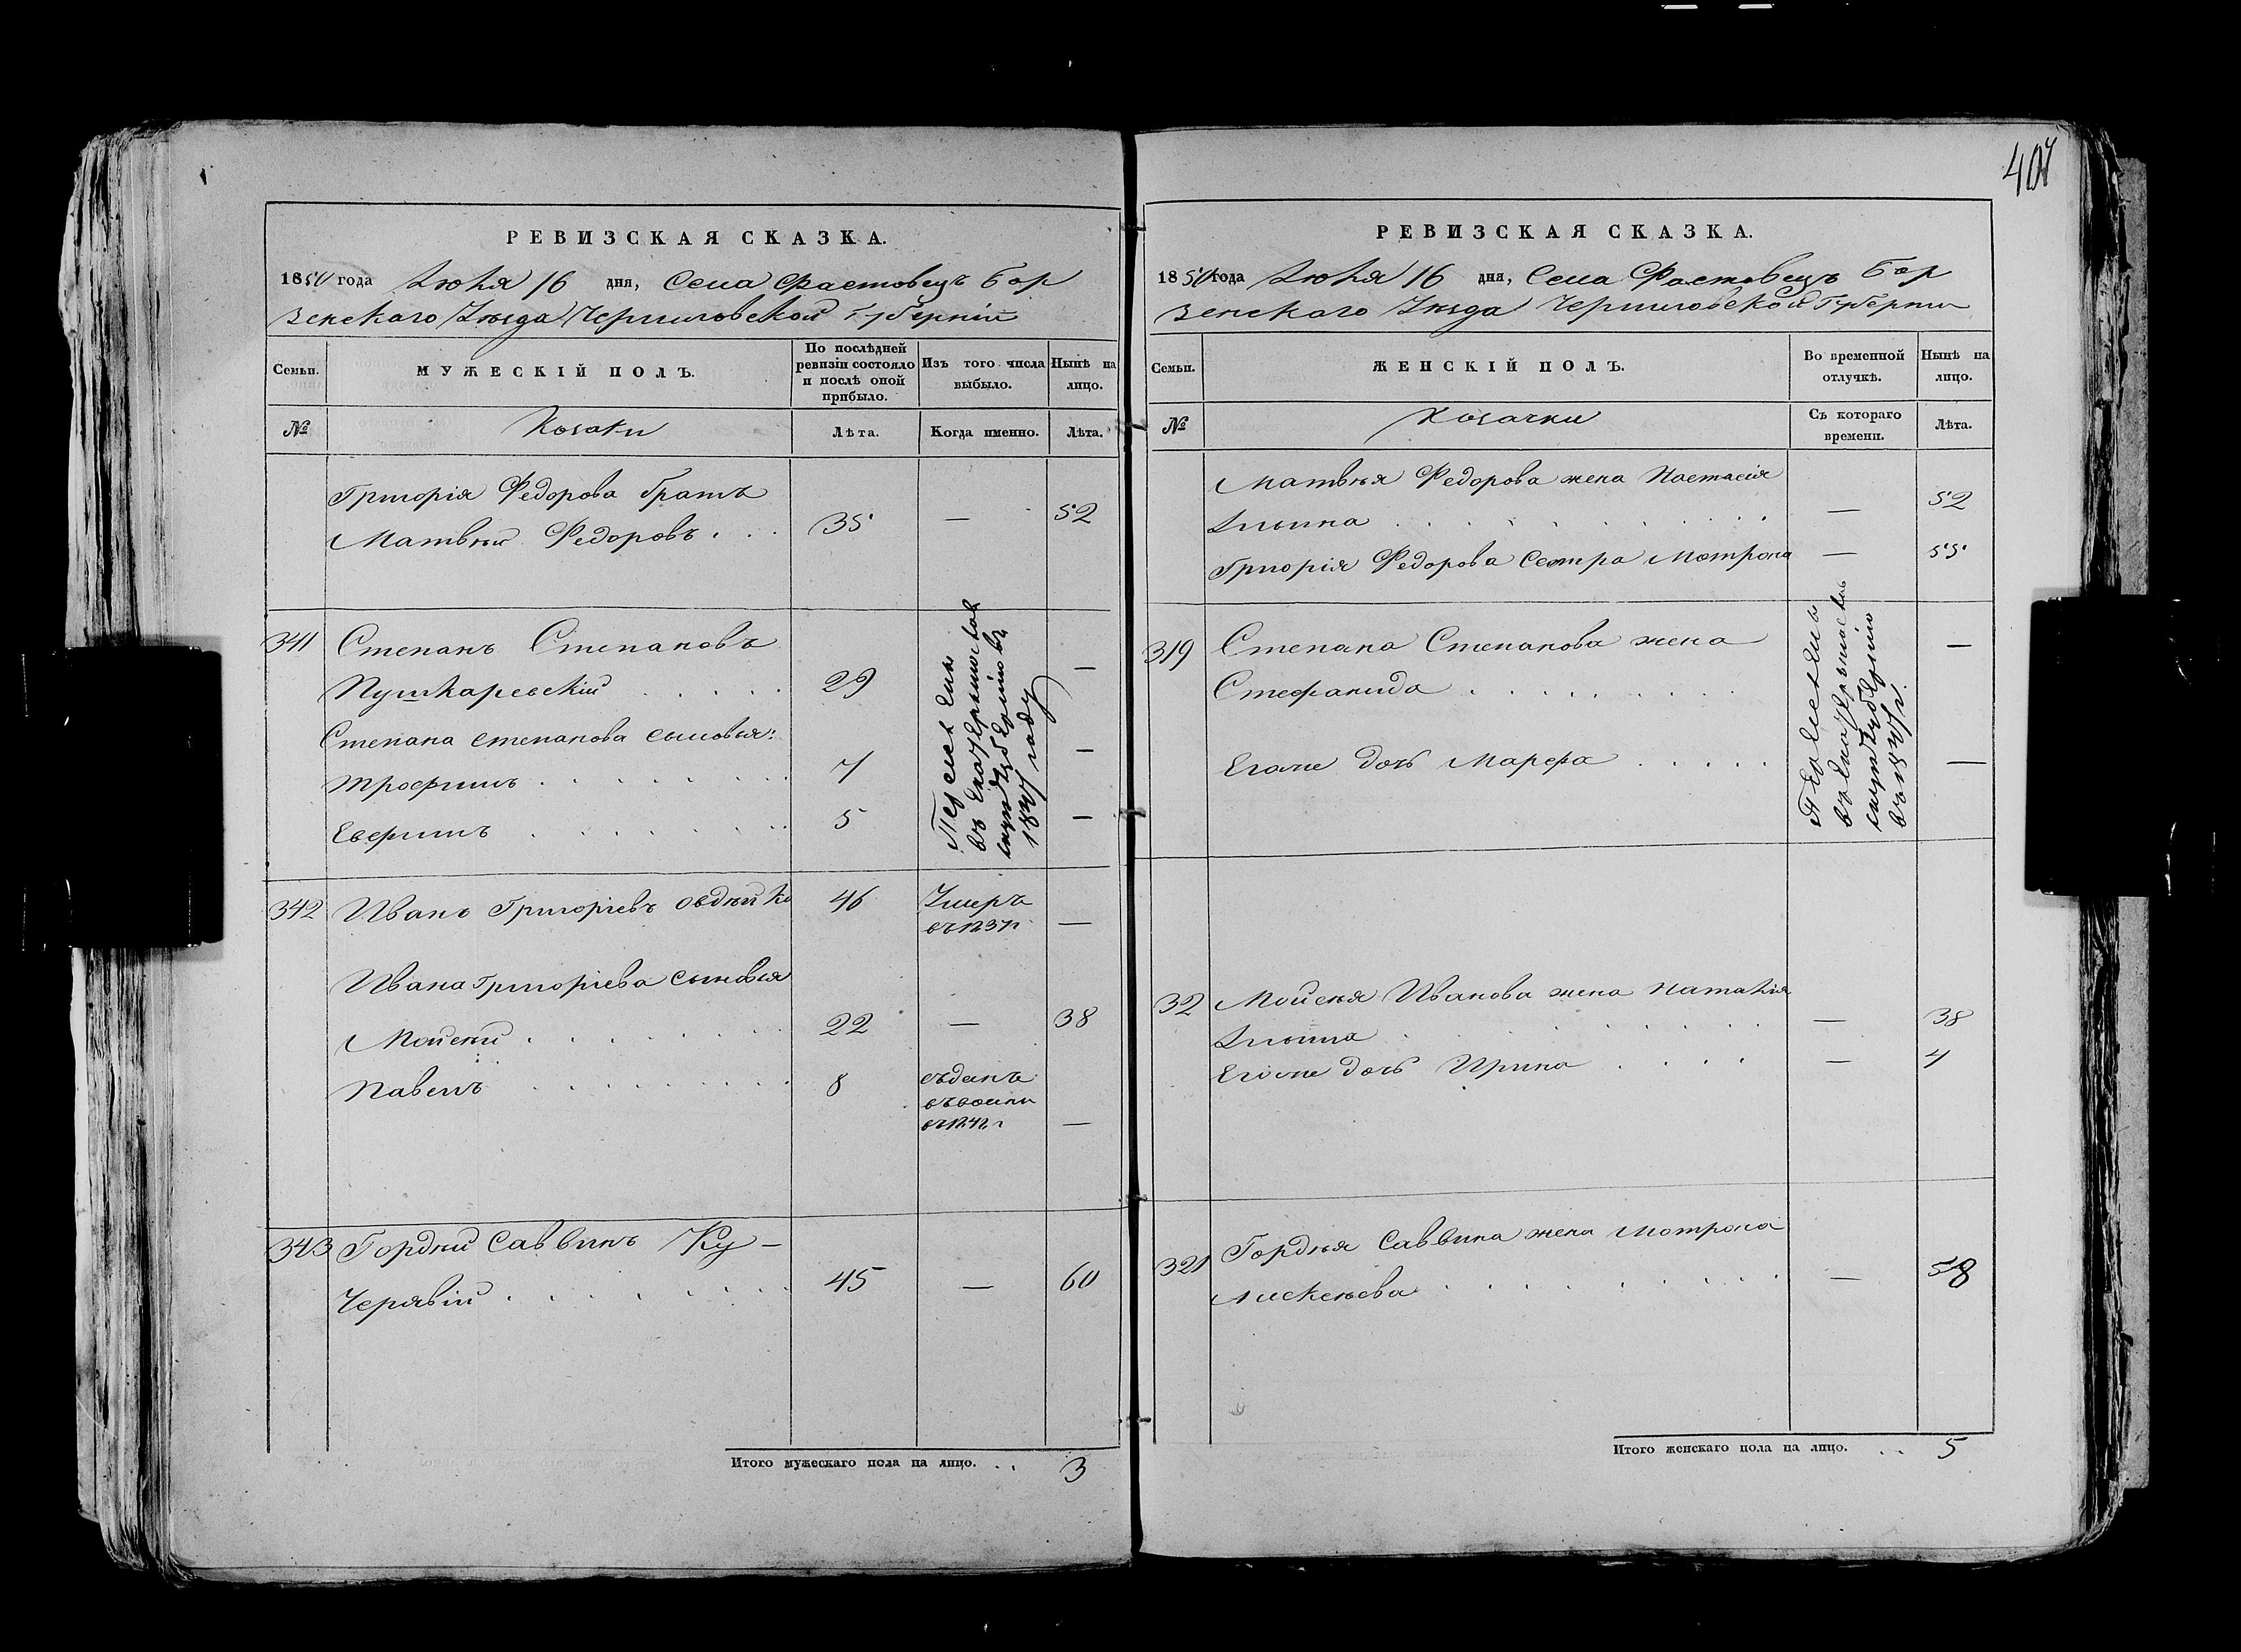 407
РЕВИЗСКАЯ СКАЗКА.
1850 года Июня 16 дня, Села Фастовецъ Бор
зенского Уезда Черниговской Губерніи
Семьи. МУЖЕСКІЙ ПОЛЪ. По послѣдней ревизіи состояло и послѣ оной прибыло. Изъ того числа выбыло. Нынѣ на лицо.
№ Козаки Лѣта. Когда именно. Лѣта.
Григорія Федорова братъ
Матвѣй Федоровъ . . . 35 — 52
341 Степанъ Степановъ
Пушкаревскій . . . . . 29 —
Степана Степанова сыновья:
Трофимъ . . . . . . . 7 —
Еверимъ . . . . . . . 5 —
Переселены
въ Екатеринослав
скую Губернію въ
1847 году
342 Иванъ Григоріевъ Овдѣйко 46 Умеръ
въ 1837г. —
Ивана Григоріева сыновья
Мойсѣй . . . . . . . 22 — 38
Павелъ . . . . . . . 8 отданъ
въ
—
343 Гордѣй Саввинъ Ку-
Черявій . . . . . . . 45 — 60
Итого мужескаго пола на лицо. . . 3
РЕВИЗСКАЯ СКАЗКА.
1850 года Июня 16 дня, Села Фастовецъ Бор
зенского Уезда Черниговской Губерніи
Семьи. ЖЕНСКІЙ ПОЛЪ. Во временной отлучкѣ. Нынѣ на лицо.
№ Козачки Съ котораго времени. Лѣта.
Матвѣя Федорова жена Настасія
Ильина . . . . . . . — 52
Григорія Федорова сестра Мотрона — 55
319 Степана Степанова жена
Стефанида . . . . . . . —
Егоже дочь Марфа . . . . . —
Переселены
въ Екатеринослав
скую Губернію
въ 1847г.
32 Мойсѣя Иванова жена Наталія
Ильина . . . . . . . — 38
Егоже дочь Ирина . . . . — 4
321 Гордѣя Саввина жена Мотрона
Алексѣева . . . . . . . — 58
Итого женскаго пола на лицо. . . 5